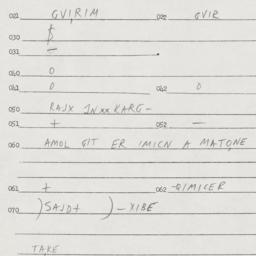 021 GVIRIM 022 GVIR
030 $
031 —
040 0
041 0 042 0
050 RAJX JNxxKARG-
051 + 052 —
060 AMOL GIT ER IMICN A MATONE
061 + 062 -QIMICER
070 )SAJD+ )-XIBE
TAKE